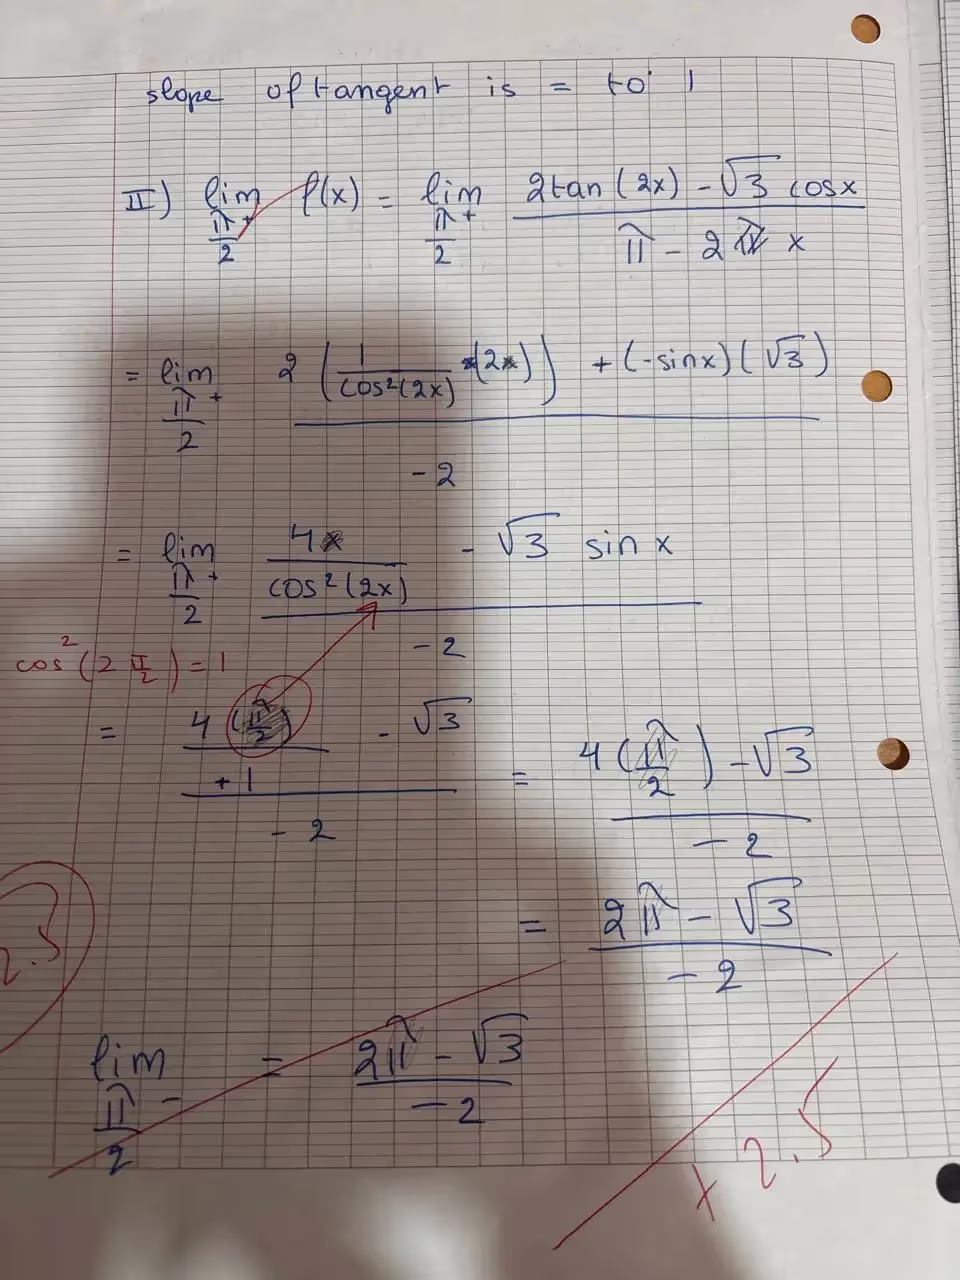 slope of tangent is = to 1
II) lim π/2⁺ f(x) = lim π/2⁺ (2tan(2x) - √3 cosx) / (π - 2 x)
= lim π/2⁺ (2 (1/cos²(2x) (2)) + (-sinx)(√3)) / -2
= lim π/2⁺ (4/cos²(2x) - √3 sin x) / -2
cos²(2 π/2) = 1
= (4 (π/2) / +1 - √3) / -2 = (4 (π/2) - √3) / -2
= (2π - √3) / -2
2.5
lim π/2⁻ = (2π - √3) / -2
+ 2.5